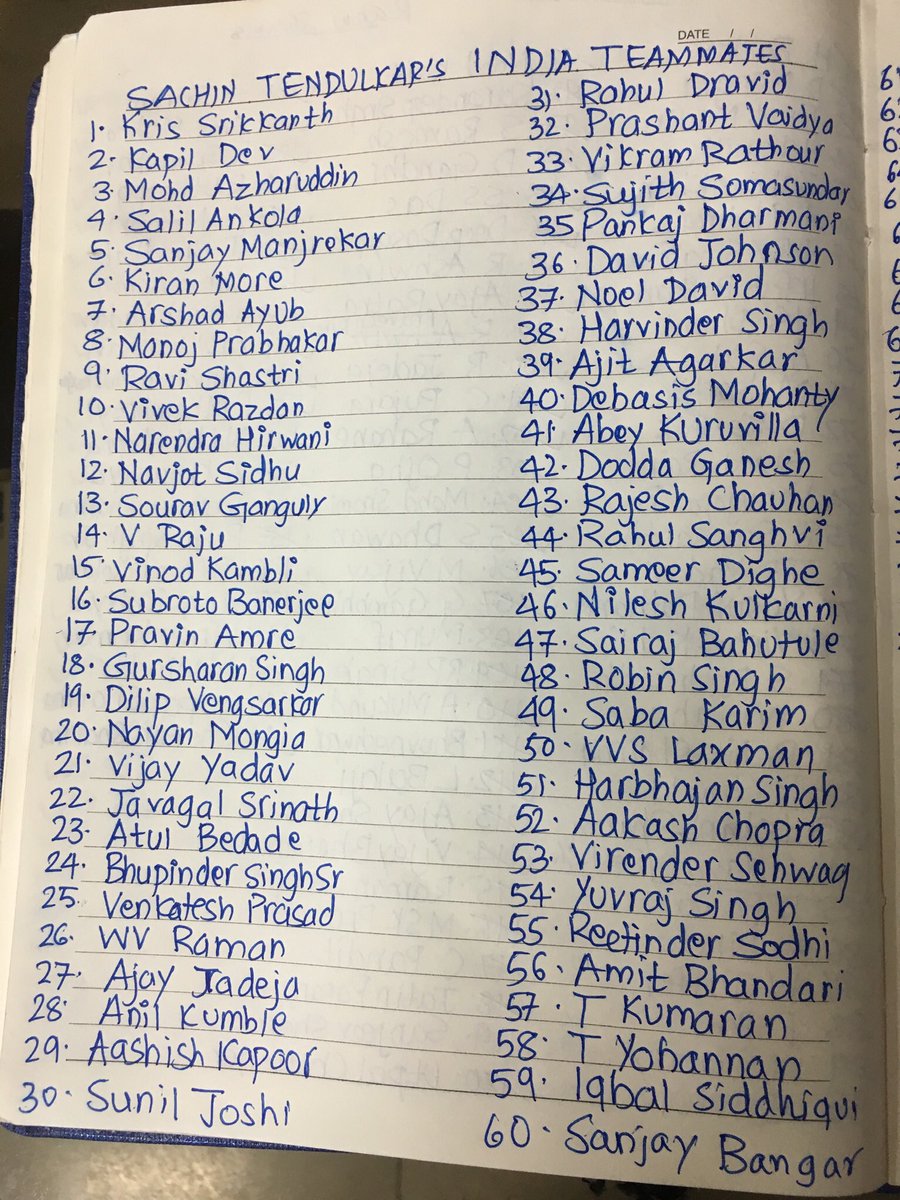 DATE / /
SACHIN TENDULKAR'S INDIA TEAMMATES
1. Kris Srikkanth
2. Kapil Dev
3. Mohd Azharuddin
4. Salil Ankola
5. Sanjay Manjrekar
6. Kiran More
7. Arshad Ayub
8. Manoj Prabhakar
9. Ravi Shastri
10. Vivek Razdan
11. Narendra Hirwani
12. Navjot Sidhu
13. Sourav Ganguly
14. V Raju
15. Vinod Kambli
16. Subroto Banerjee
17. Pravin Amre
18. Gursharan Singh
19. Dilip Vengsarkar
20. Nayan Mongia
21. Vijay Yadav
22. Javagal Srinath
23. Atul Bedade
24. Bhupinder Singh Sr
25. Venkatesh Prasad
26. WV Raman
27. Ajay Jadeja
28. Anil Kumble
29. Aashish Kapoor
30. Sunil Joshi
31. Rahul Dravid
32. Prashant Vaidya
33. Vikram Rathour
34. Sujith Somasundar
35 Pankaj Dharmani
36. David Johnson
37. Noel David
38. Harvinder Singh
39. Ajit Agarkar
40. Debasis Mohanty
41. Abey Kuruvilla
42. Dodda Ganesh
43. Rajesh Chauhan
44. Rahul Sanghvi
45. Sameer Dighe
46. Nilesh Kulkarni
47. Sairaj Bahutule
48. Robin Singh
49. Saba Karim
50. VVS Laxman
51. Harbhajan Singh
52. Aakash Chopra
53. Virender Sehwag
54. Yuvraj Singh
55. Reetinder Sodhi
56. Amit Bhandari
57. T Kumaran
58. T Yohannan
59. Iqbal Siddhiqui
60. Sanjay Bangar